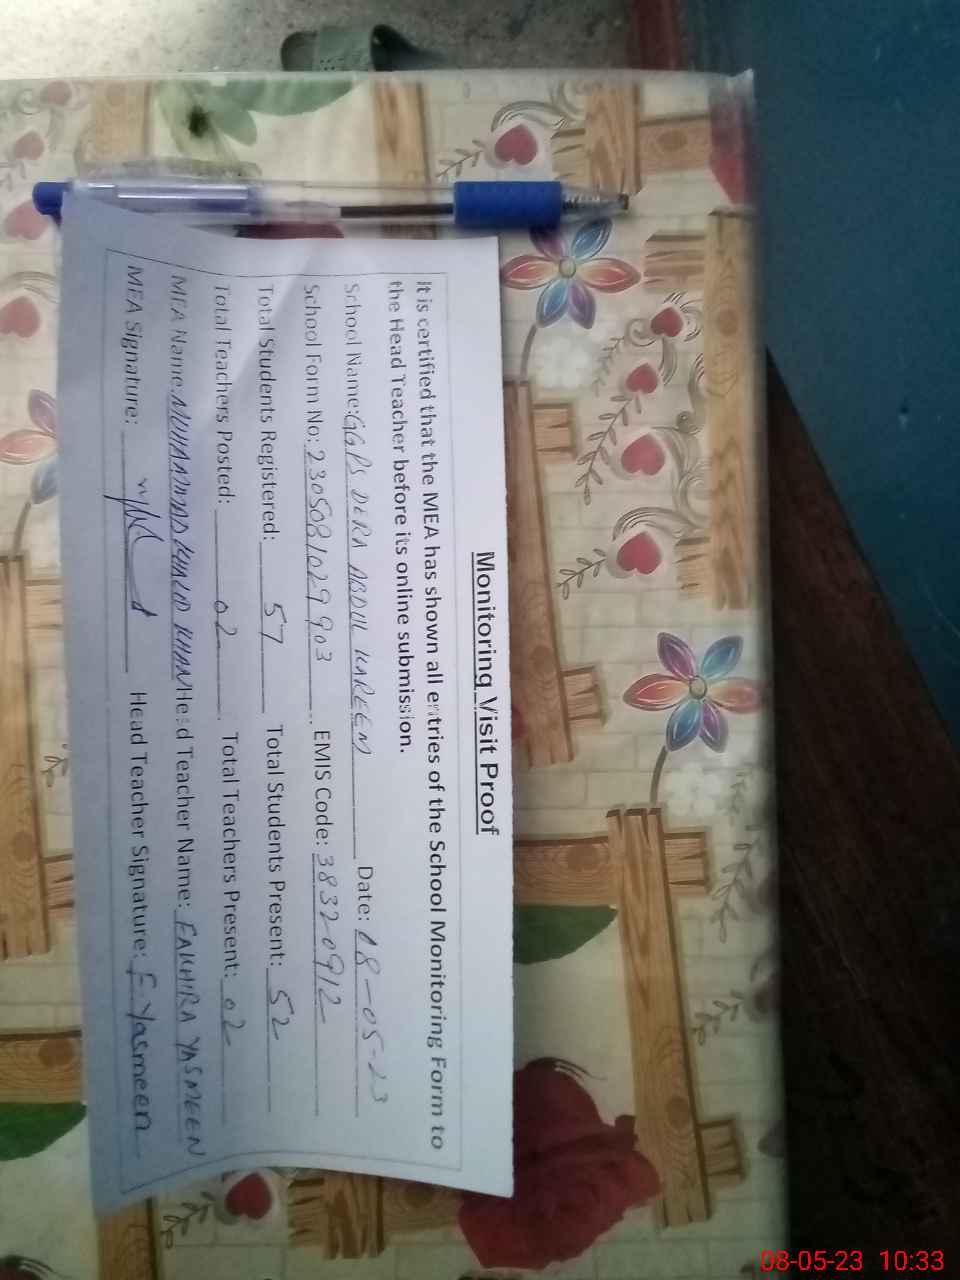 Monitoring Visit Proof
It is certified that the MEA has shown all entries of the School Monitoring Form to
the Head Teacher before its online submission.
School Name: GGPS DERA ABDUL KAREEM Date: 08-05-23
School Form No: 2305081029903 EMIS Code: 38320912
Total Students Registered: 57 Total Students Present: 52
Total Teachers Posted: 02 Total Teachers Present: 02
MEA Name: MUHAMMAD KHALID KHAN Head Teacher Name: FAKHIRA YASMEEN
MEA Signature: Head Teacher Signature: F. Yasmeen
08-05-23 10:33